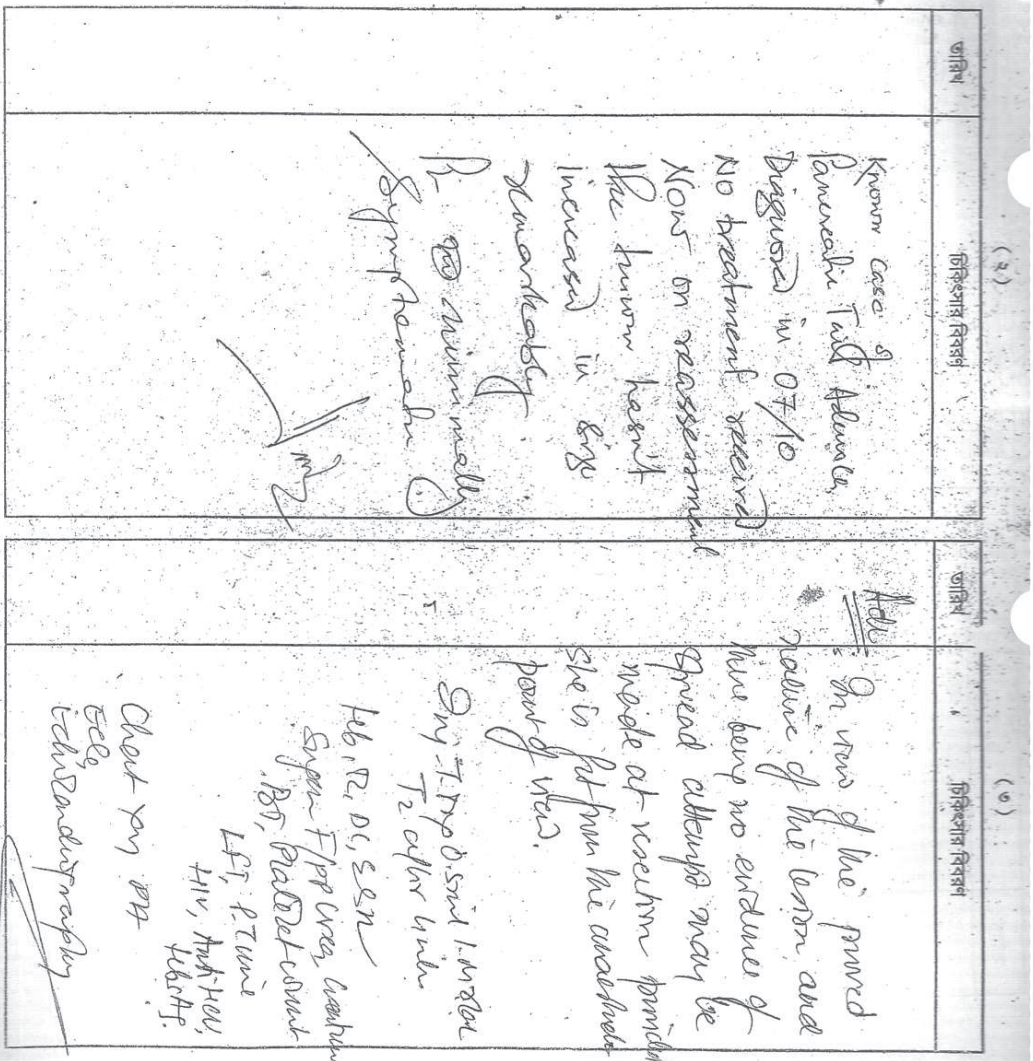 (২)
তারিখ চিকিৎসার বিবরণ
Known case of
Pancreatic Tail
Diagnosed in 07/10
No treatment received
Now on reassessment
the tumor hasn't
increased in size
remarkably
Pt. minimally
Symptomatic
(৩)
তারিখ চিকিৎসার বিবরণ
Adv: In view of the proved
nature of the lesion and
there being no evidence of
spread attempt may be
made at resection provided
she is fit from the
point of view.
Inj-
Hb, TC, DC, ESR
Sugar F/PP Urea, Creatinine
BT, Platelet count
LFT, P. Time
HIV, Anti HCV,
HBsAg.
Chest Xray PA
ECG